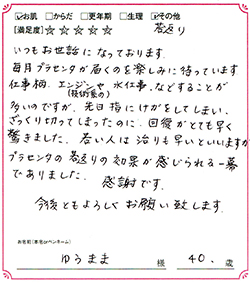 ☑お肌 □からだ □更年期 □生理 ☑その他
[満足度]☆☆☆☆☆ 若返り
いつもお世話になっております。
毎月プラセンタが届くのを楽しみに待っています
仕事柄、エンジンや水仕事、などすることが
(技術系の)
多いのですが、先日指にけがをしてしまい、
ざっくり切ってしまったのに、回復がとても早く
驚きました。若い人は治りも早いといいますが
プラセンタの若返りの効果が感じられる一幕
でありました。感謝です。
今後ともよろしくお願い致します。
お名前(本名orペンネーム)
ゆうまま 様 40.歳